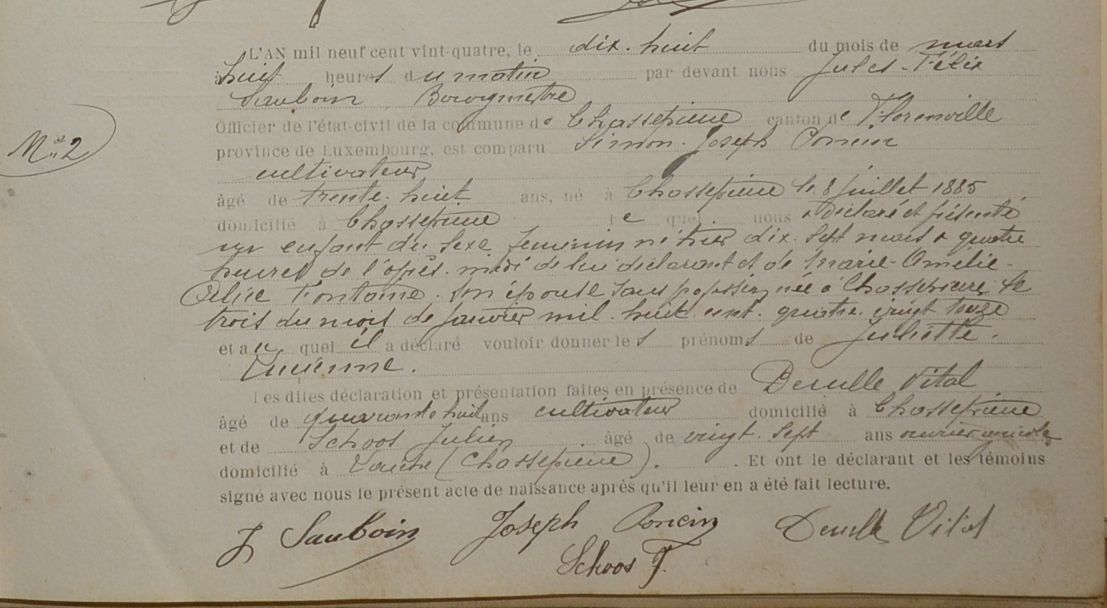 L'AN mil neuf cent vint-quatre, le dix-huit du mois de mars
à huit heures du matin par devant nous Jules-Félix
Sauboin Bourgmestre
Officier de l'état-civil de la commune de Chassepierre canton de Florenville
N° 2
province de Luxembourg, est comparu Simon-Joseph Poncin
cultivateur
âgé de trente-huit ans, né à Chassepierre le 8 juillet 1885
domicilié à Chassepierre lequel nous a déclaré et présenté
un enfant du sexe féminin né hier dix-sept mars à quatre
heures de l'après-midi de lui déclarant et de Marie-Amélie-
Fontaine son épouse sans profession née à Chassepierre le
trois du mois de janvier mil huit cent quatre vingt
et au quel il a déclaré vouloir donner les prénoms de Juliette.
Lucienne.
Les dites déclaration et présentation faites en présence de Deculle Vital
âgé de quarante huit ans cultivateur domicilié à Chassepierre
et de Schoos Julien âgé de vingt-sept ans ouvrier agricole
domicilié à Laiche (Chassepierre). Et ont le déclarant et les témoins
signé avec nous le présent acte de naissance après qu'il leur en a été fait lecture.
J Sauboin Joseph Poncin Deculle Vital
Schoos J.